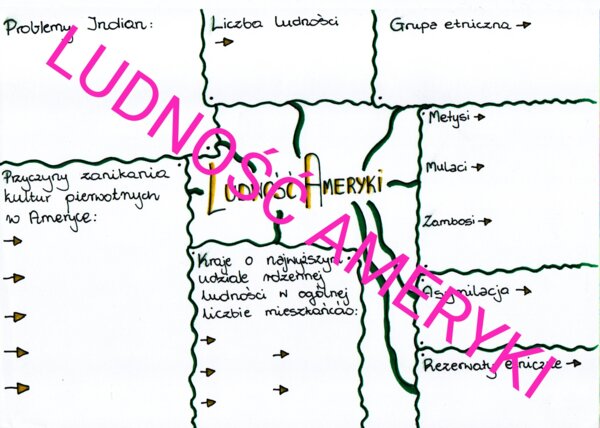 Problemy Indian:
Liczba ludności
Grupa etniczna
Metysi
Mulaci
Zambosi
Przyczyny zanikania
kultur pierwotnych
w Ameryce:
LUDNOŚĆ AMERYKI
Kraje o najwyższym
udziale rdzennej
ludności w ogólnej
liczbie mieszkańców:
Asymilacja
Rezerwaty etniczne
LUDNOŚĆ AMERYKI